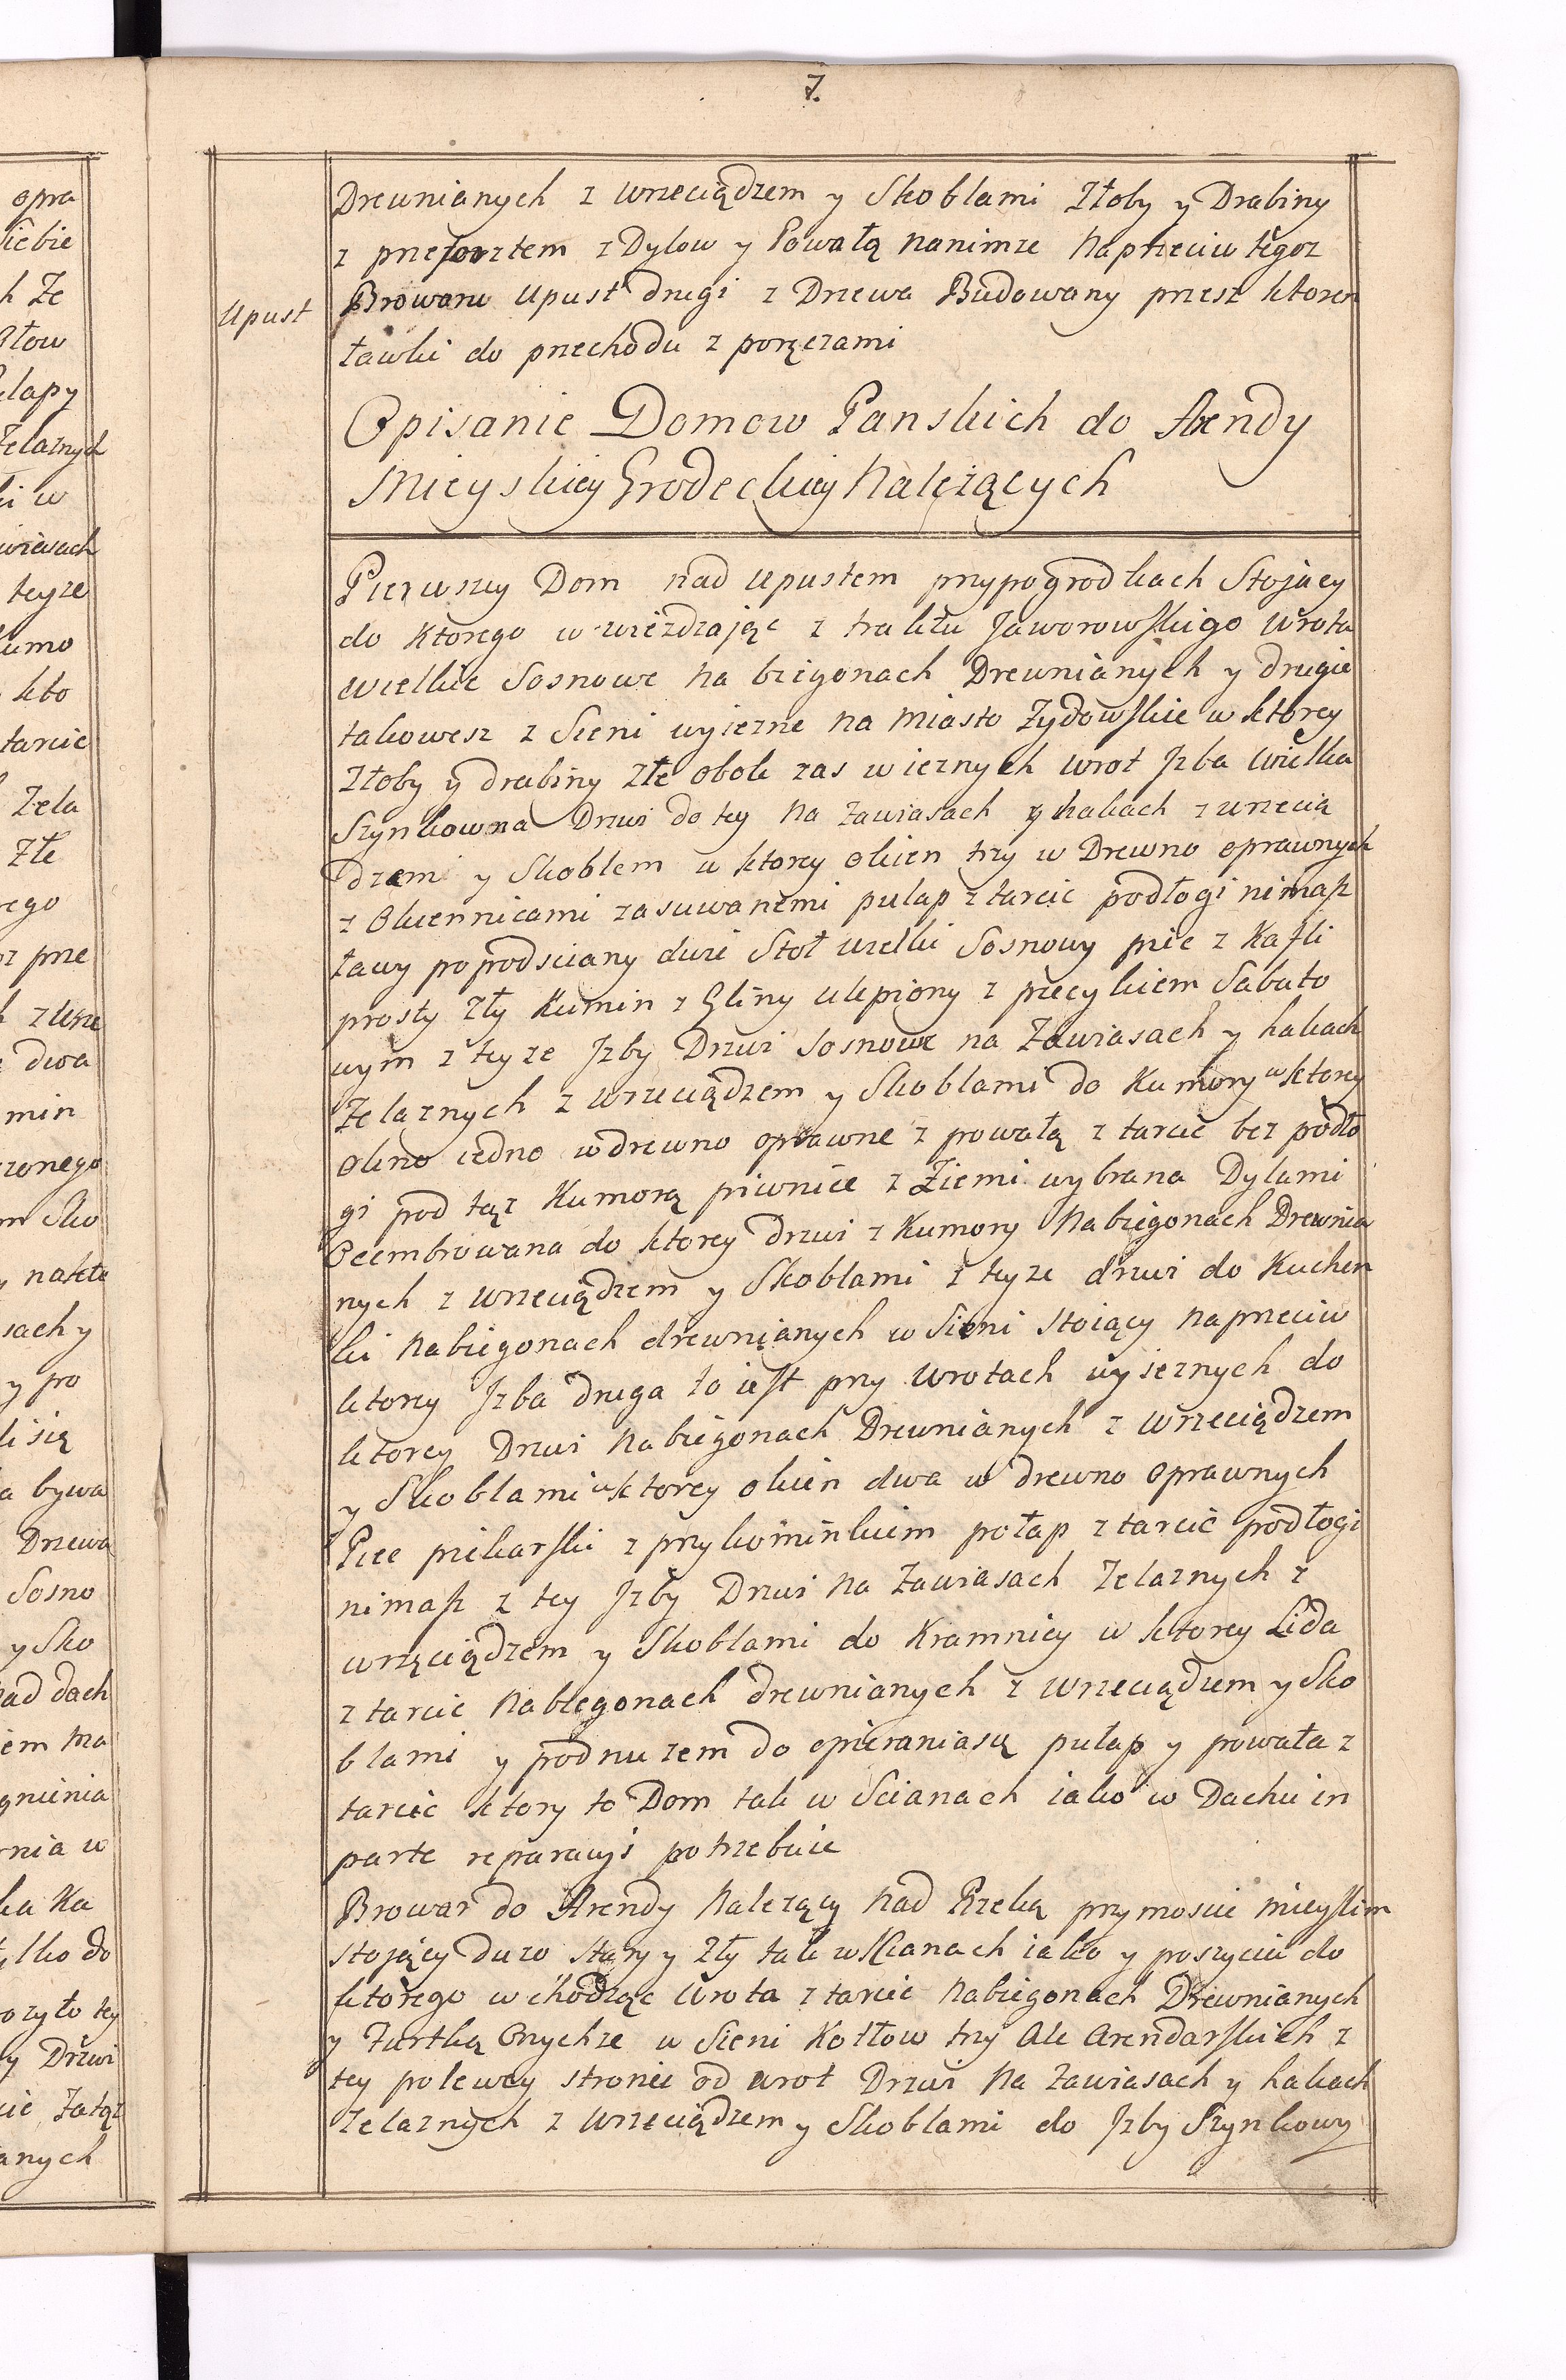 7.
Drewnianych z wrzeciądzem y Skoblami Złoby y Drabiny
z przeforztem z Dylow y Powałą nanimze Naprzeciw tegoz
Upust
Browaru Upust drugi z Drzewa Budowany przesz ktoren
ławki do przechodu z poręczami
Opisanie Domow Panskich do Arendy
Mieyskiey Grodeckiey Nalezących
Pierwszy Dom nad Upustem przypogrodkach Stojący
do ktorego w wiezdzając z traktu Jaworowskiego Wrota
wielkie Sosnowe na biegonach Drewnianych y drugie
takowesz z Sieni wyiezne na Miasto Zydowskie w ktorey
Złoby y drabiny Złe obok zas wieznych wrot Jzba wielka
Szynkowna Drzwi do tey na zawiasach y hakach z wrzecią
dzem y Skoblem w ktorey okien trzy w Drewno oprawnych
z Okiennicami zasuwanemi pulap z tarcic podłogi nimasz
ławy popodsciany dwie Stoł wielki Sosnowy piec z Kafli
prosty Zły Kumin z Gliny ulepiony z piecykiem Sabato
wym z teyze Jzby Drzwi Sosnowe na Zawiasach y hakach
Zelaznych z wrzeciądzem y Skoblami do Kumory w ktorey
okno iedno wdrewno oprawne z powałą z tarcic bez podło
gi pod tąz Kumorą piwnice z Ziemi wybrana Dylami
Ocembrowana do ktorey drzwi z Kumory Nabiegonach Drewnia
nych z wrzeciądzem y Skoblami z teyze drzwi do Kuchen
ki Nabiegonach drewnianych w Sieni stoiący naprzeciw
ktorey Jzba druga to iest przy wrotach wyieznych do
ktorey Drzwi Nabiegonach Drewnianych z wrzeciądzem
y Skoblami w ktorey okien dwa w drewno oprawnych
Piec piekarski z przykominkiem połap z tarcic podłogi
nimasz z tey Jzby Drzwi na zawiasach Zelaznych z
wrzęciądzem y Skoblami do Kramnicy w ktorey Lida
z tarcic nabiegonach drewnianych z wrzeciądzem y Sko
blami y podnuzem do opieraniasię pułap y powała z
tarcic ktory to Dom tak w Scianach iako w Dachu in
parte reparacyi potrzebuie
Browar do Arendy Nalezący Nad Rzeką przymoscie mieyskim
stojący duzo stary y zły tak wscianach iako y poszyciu do
ktorego wchodząc wrota z tarcic nabiegonach Drewnianych
y Furtką Onychze w Sieni Kotłow trzy Ale Arendarskich z
tey polewey stronie od wrot Drzwi na zawiasach y hakach
Zelaznych z wrzeciądzem y Skoblami do Jzby Szynkowy